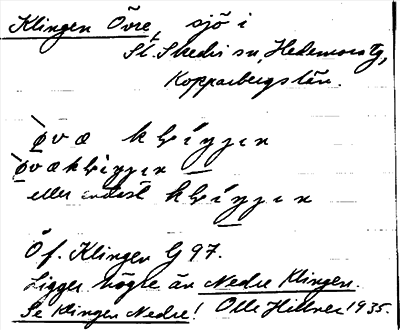 Klingen Övre, sjö i
St. Skedvi sn, Hedemora tg,
Kopparbergs län.
eller endast
Öf. Klingen G 97.
Ligger högre än Nedre Klingen.
Se Klingen Nedre! Olle Hillner 1935.